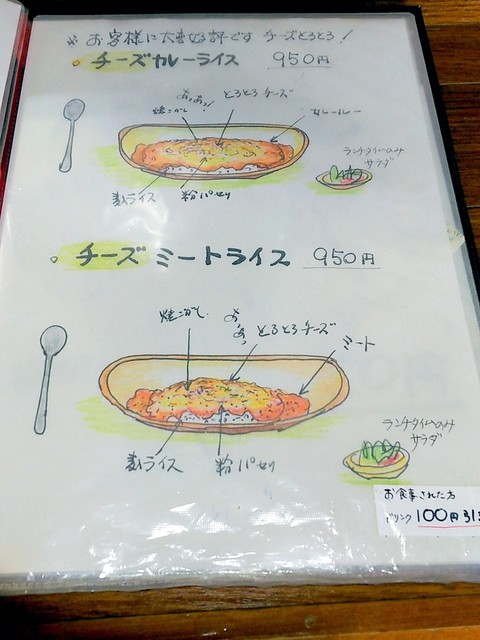 ※ お客様に大変好評です チーズとろとろ!
○ チーズカレーライス 950円
あつあつ!
とろとろチーズ
焼こがし
カレールー
ランチタイムのみ
サラダ
麦ライス
粉パセリ
○ チーズ ミートライス 950円
焼こがし
あつあつ
とろとろチーズ
ミート
ランチタイムのみ
サラダ
麦ライス
粉パセリ
お食事された方
ドリンク 100円引き